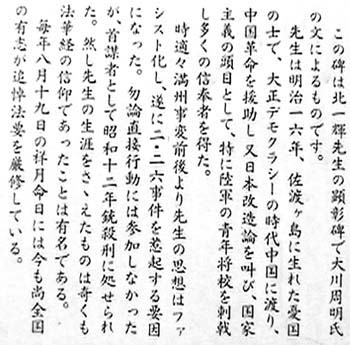 この碑は北一輝先生の顕彰碑で大川周明氏
の文によるものです。
先生は明治一六年、佐渡ヶ島に生れた憂国
の士で、大正デモクラシーの時代中国に渡り、
中国革命を援助し又日本改造論を叫び、国家
主義の頭目として、特に陸軍の青年将校を刺戟
し多くの信奉者を得た。
時適々満州事変前後より先生の思想はファ
シスト化し、遂に二・二六事件を惹起する要因
になった。勿論直接行動には参加しなかった
が、首謀者として昭和十二年銃殺刑に処せられ
た。然し先生の生涯をさゝえたものは奇くも
法華経の信仰であったことは有名である。
毎年八月十九日の祥月命日には今も尚全国
の有志が追悼法要を厳修している。